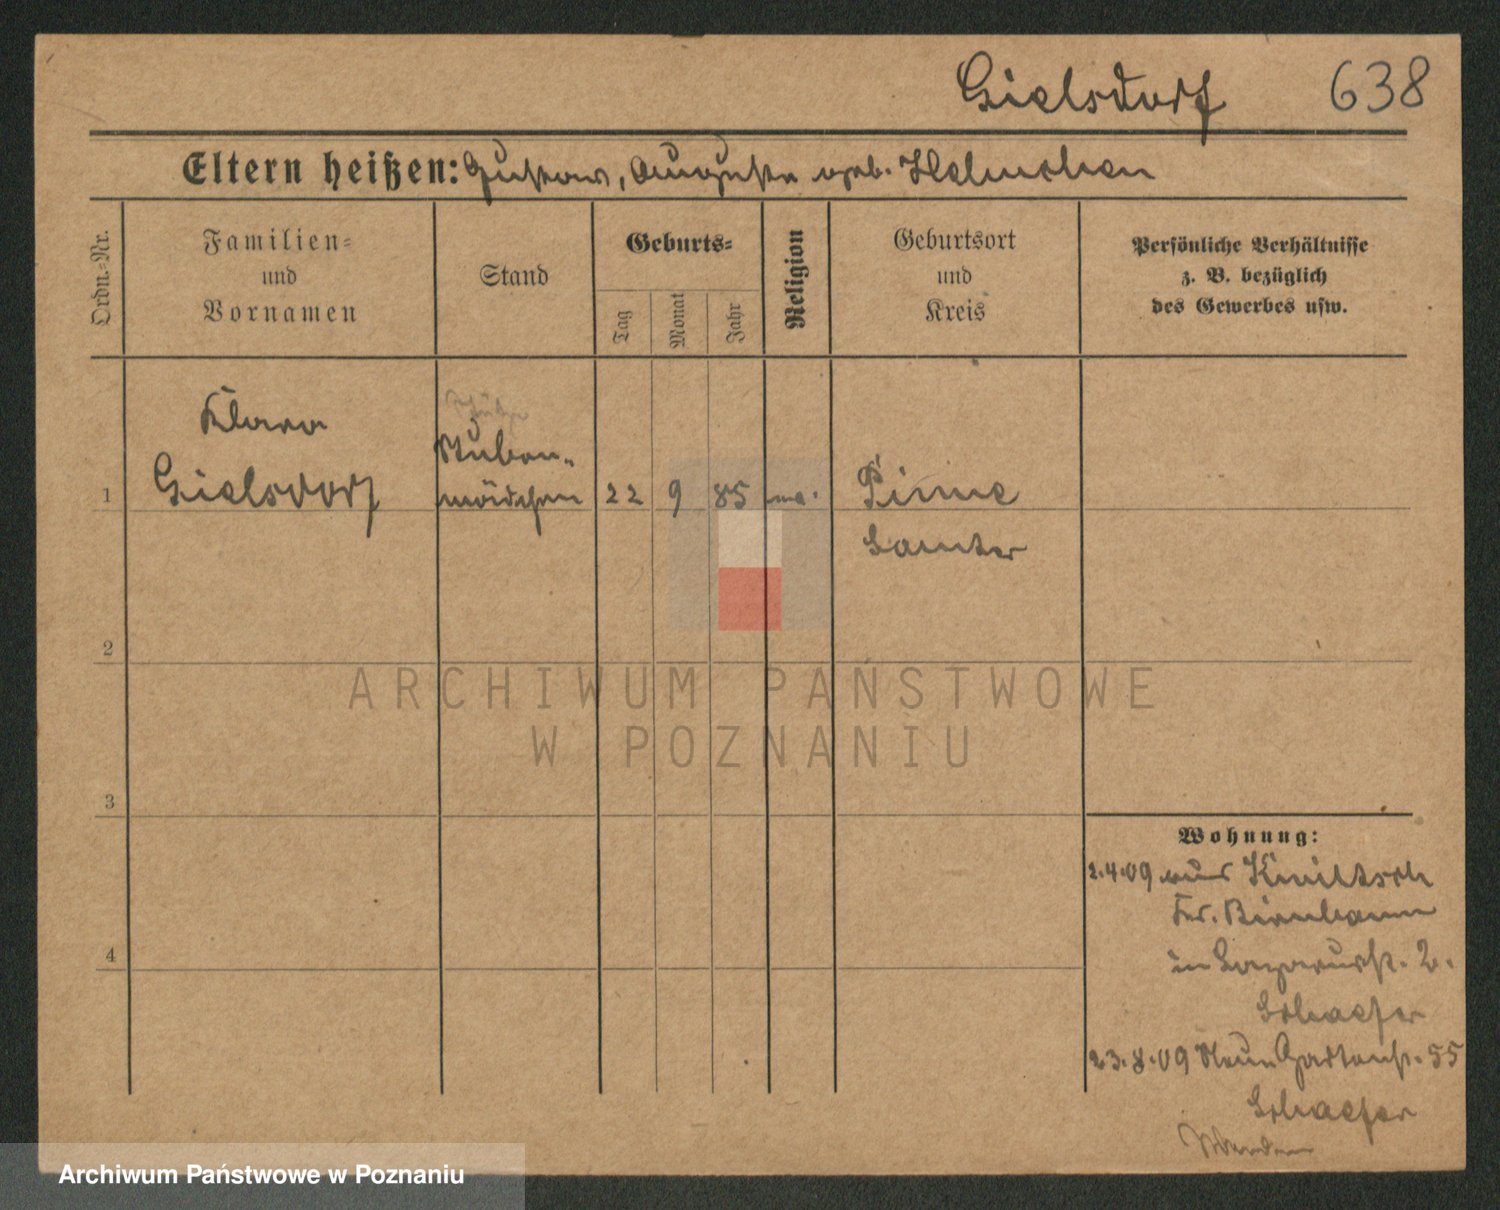 Gielsdorf 638
Eltern heißen: Gustav, Auguste geb. Helmchen
Ordn.-Nr.
Familien-
und
Vornamen
Stand
Geburts-
Tag
Monat
Jahr
Religion
Geburtsort
und
Kreis
Persönliche Verhältnisse
z. B. bezüglich
des Gewerbes usw.
Klara
Stuben-
1 Gielsdorf mädchen 22 9 85 Pinne
Samter
2
ARCHIWUM PAŃSTWOWE
W POZNANIU
3
Wohnung:
2.4.09 aus
Fr. Birnbaum
in Lazarusst. 2.
4
Schaefer
23.8.09 Neue Gartenst. 55
Schaefer
Wenden
Archiwum Państwowe w Poznaniu